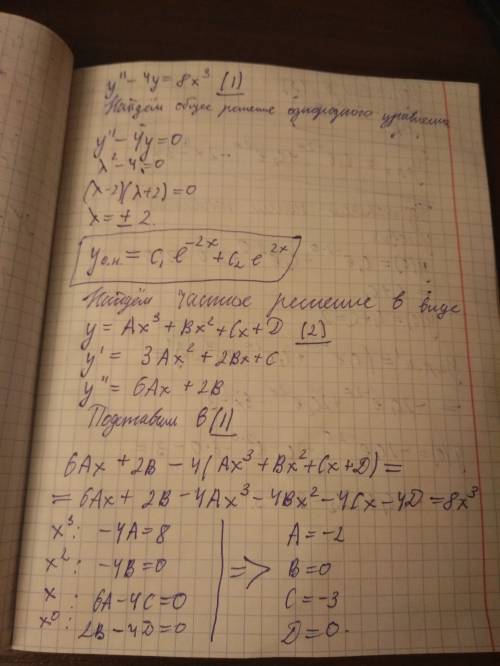 y'' - 4y = 8x³ (1)
Найдём общее решение однородного уравнения
y'' - 4y = 0
λ² - 4 = 0
(λ-2)(λ+2) = 0
λ = ± 2
y о.н. = C₁ e⁻²ˣ + C₂ e²ˣ
Найдём частное решение в виде
y = Ax³ + Bx² + Cx + D (2)
y' = 3Ax² + 2Bx + C
y'' = 6Ax + 2B
Подставим в (1)
6Ax + 2B - 4(Ax³ + Bx² + Cx + D) =
= 6Ax + 2B - 4Ax³ - 4Bx² - 4Cx - 4D = 8x³
x³: -4A = 8 A = -2
x²: -4B = 0 => B = 0
x: 6A - 4C = 0 C = -3
x⁰: 2B - 4D = 0 D = 0.